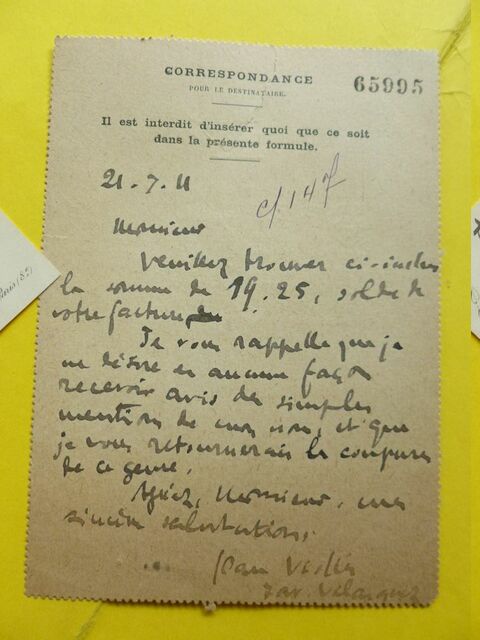 CORRESPONDANCE
65995
POUR LE DESTINATAIRE.
Il est interdit d'insérer quoi que ce soit
dans la présente formule.
21.7.11
c/. 147
Monsieur
Veuillez trouver ci-inclus
la somme de 19.25, solde de
votre facture
Je vous rappelle que je
ne désire en aucune façon
recevoir avis de simples
mentions de mon nom, et que
je vous retournerais les coupures
de ce genre.
Agréez, Monsieur, mes
sincères salutations.
Jean
Velasquez